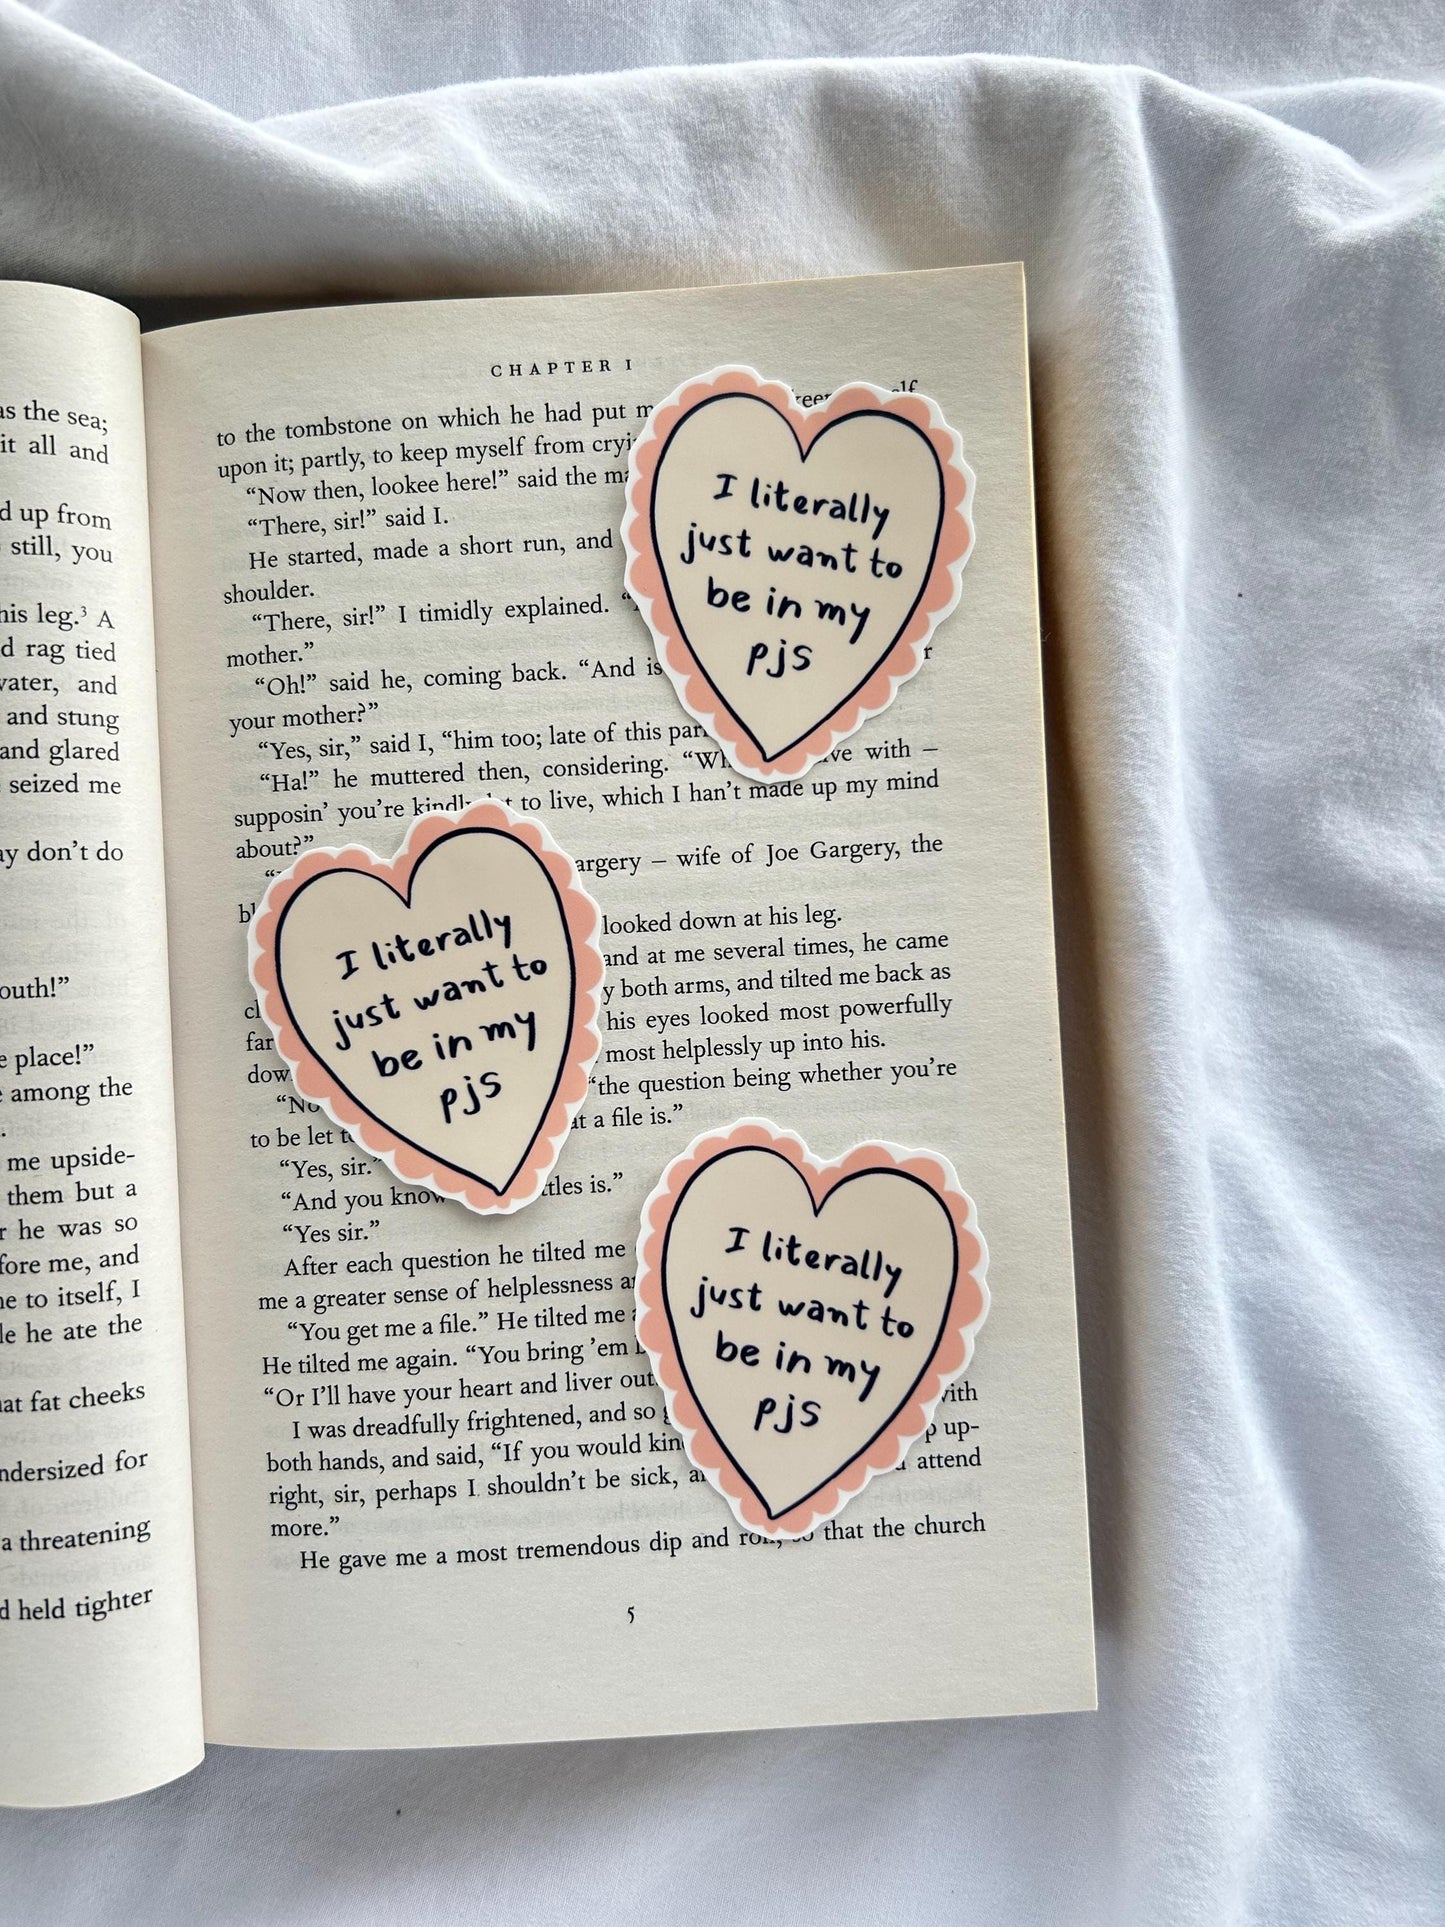 as the sea;
it all and
d up from
still, you
his leg.³ A
d rag tied
vater, and
and stung
and glared
seized me
ay don't do
outh!"
e place!"
e among the
.
me upside-
them but a
r he was so
fore me, and
ne to itself, I
le he ate the
nat fat cheeks
ndersized for
a threatening
d held tighter
CHAPTER I
to the tombstone on which he had put m keep self
upon it; partly, to keep myself from cryi
"Now then, lookee here!" said the ma
"There, sir!" said I.
He started, made a short run, and
shoulder.
"There, sir!" I timidly explained. "
mother."
"Oh!" said he, coming back. "And is r
your mother?"
"Yes, sir," said I, "him too; late of this par
"Ha!" he muttered then, considering. "Wh ve with –
supposin' you're kindly let to live, which I han't made up my mind
about?"
argery – wife of Joe Gargery, the
bl
looked down at his leg.
and at me several times, he came
cl y both arms, and tilted me back as
far his eyes looked most powerfully
dow most helplessly up into his.
"No "the question being whether you're
to be let t at a file is."
"Yes, sir."
"And you know ttles is."
"Yes sir."
After each question he tilted me
me a greater sense of helplessness a
"You get me a file." He tilted me a
He tilted me again. "You bring 'em b
"Or I'll have your heart and liver out
I was dreadfully frightened, and so g with
both hands, and said, "If you would kin p up-
right, sir, perhaps I shouldn't be sick, a attend
more."
He gave me a most tremendous dip and roll, so that the church
5
I literally
just want to
be in my
pjs
I literally
just want to
be in my
pjs
I literally
just want to
be in my
pjs